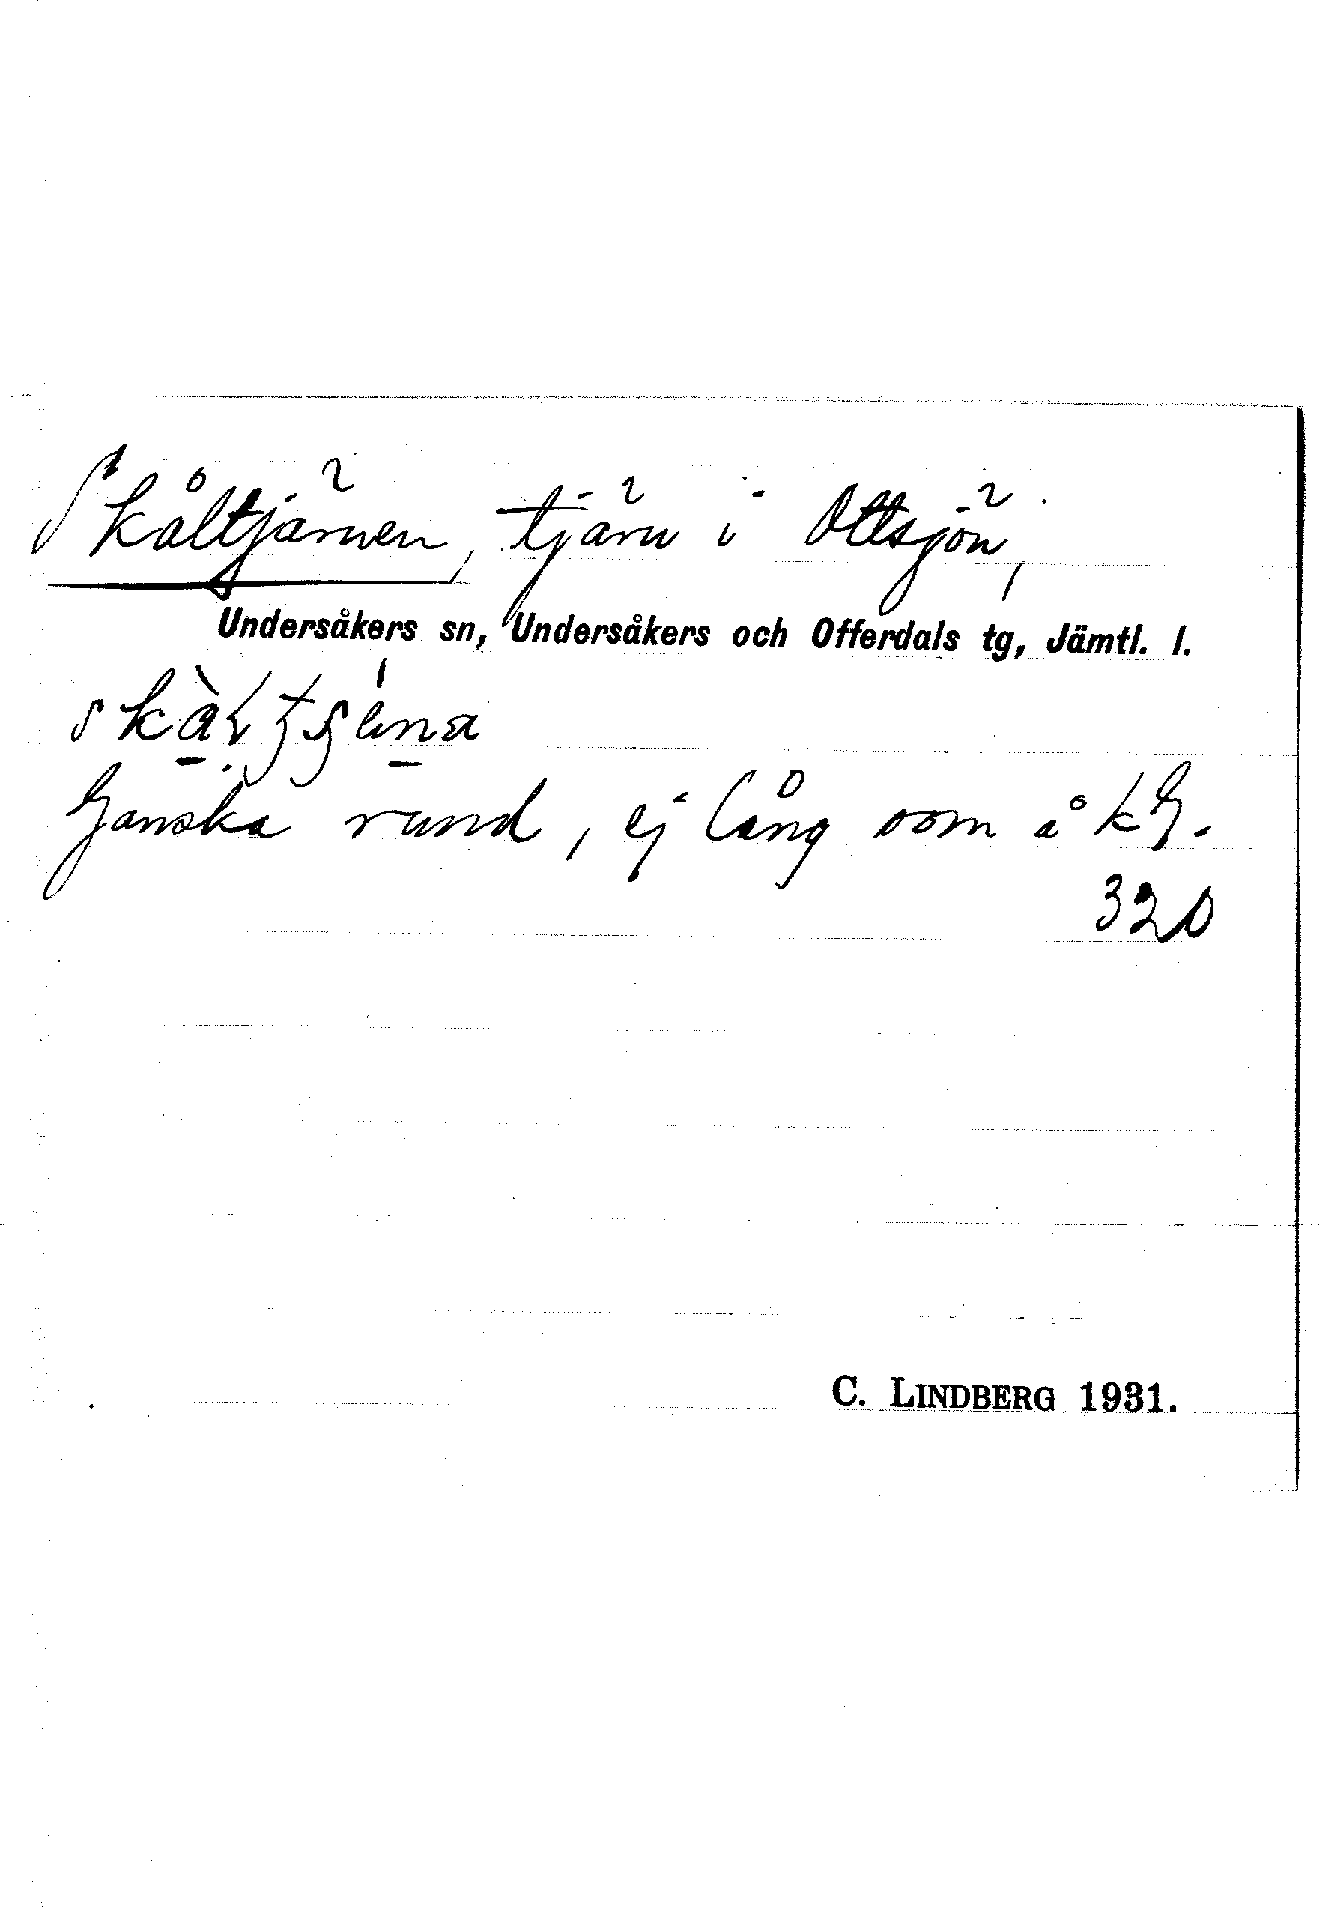 Skåltjärnen, tjärn i Ottsjön,
Undersåkers sn, Undersåkers och Offerdals tg, Jämtl. l.
Ganska rund, ej lång som å kg.
320
C. LINDBERG 1931.